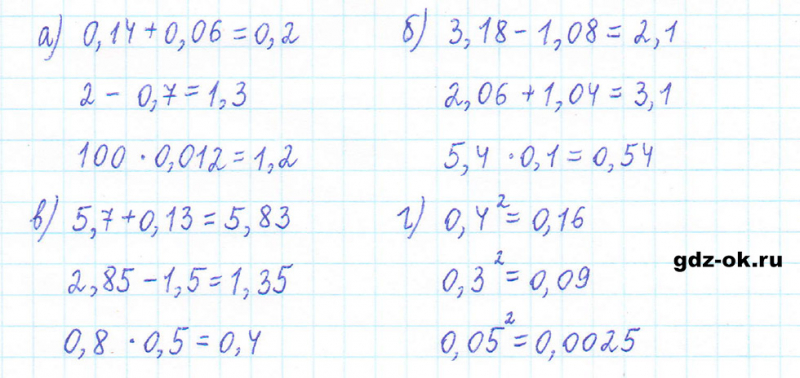 а) 0,14 + 0,06 = 0,2
2 - 0,7 = 1,3
100 · 0,012 = 1,2
б) 3,18 - 1,08 = 2,1
2,06 + 1,04 = 3,1
5,4 · 0,1 = 0,54
в) 5,7 + 0,13 = 5,83
2,85 - 1,5 = 1,35
0,8 · 0,5 = 0,4
г) 0,4² = 0,16
0,3² = 0,09
0,05² = 0,0025
gdz-ok.ru